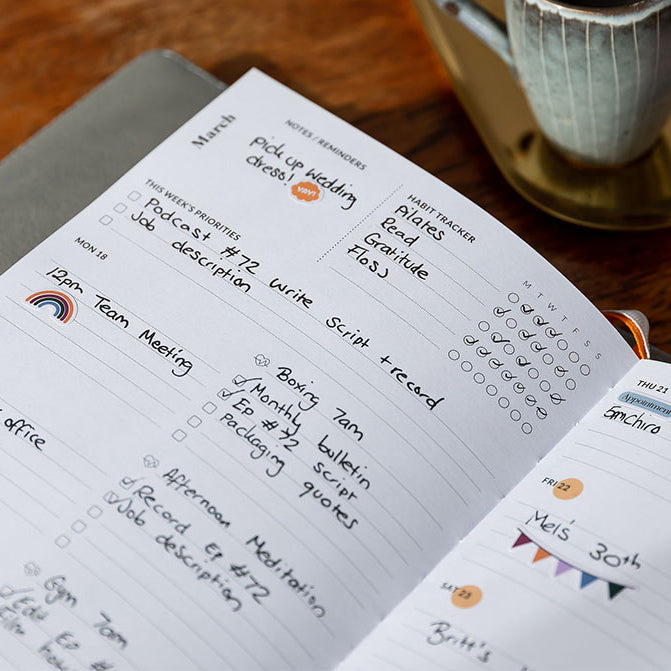 March
NOTES / REMINDERS
pick up wedding
dress!
YAY!
THIS WEEK'S PRIORITIES
Podcast #72 write script + record
Job description
HABIT TRACKER
Pilates
Read
Gratitude
Floss
M T W T F S S
MON 18
12pm Team Meeting
Boxing 7am
Monthly bulletin
Ep #72 script
Packaging quotes
office
Afternoon Meditation
Record Ep #72
Job description
Gym 7am
Edit Ep #
THU 21
Appointment
FRI 22
Mel's 30th
SAT 23
Britt's